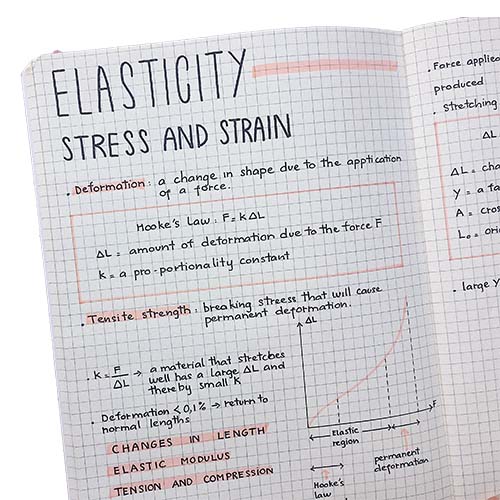 ELASTICITY
STRESS AND STRAIN
. Deformation : a change in shape due to the application
of a force.
Hooke's Law : F = k ΔL
ΔL = amount of deformation due to the force F
k = a pro-portionality constant
. Tensite strength : breaking streess that will cause
permanent deformation.
. k = F/ΔL → a material that stretches
well has a large ΔL and
thereby small K
. Deformation < 0,1% → return to
normal lengths
CHANGES IN LENGTH
ELASTIC MODULUS
TENSION AND COMPRESSION
ΔL
F
Elastic
region
permanent
deformation
Hooke's
law
. Force applied
produced
. Stretching
ΔL
ΔL = cha
Y = a fa
A = cros
L₀ = ori
. large Y